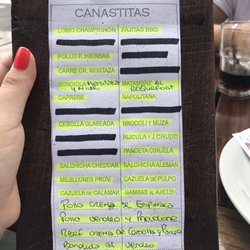 CANASTITAS
LOMO CHAMPIGNON FAJITAS BBQ
POLLO F. HIERBAS
CARRE CR. MOSTAZA
BONDIOLA MATAMBRE AL ROQUEFORT
CAPRESE NAPOLITANA
CEBOLLA GLASEADA BROCOLI Y MUZA
RUCULA Y J.CRUDO
PANCETA CIRUELA
BALCHICHA CHEDDAR BALCHICHA ALEMAN
MEJILLONES PROV. CAZUELA DE PULPO
CAZUELA DE CALAMAR GAMBAS AL AJILLO
Pollo crema de Espinaca
Pollo verdeo y
Beef crema de cebolla y
Bondiola al verdeo